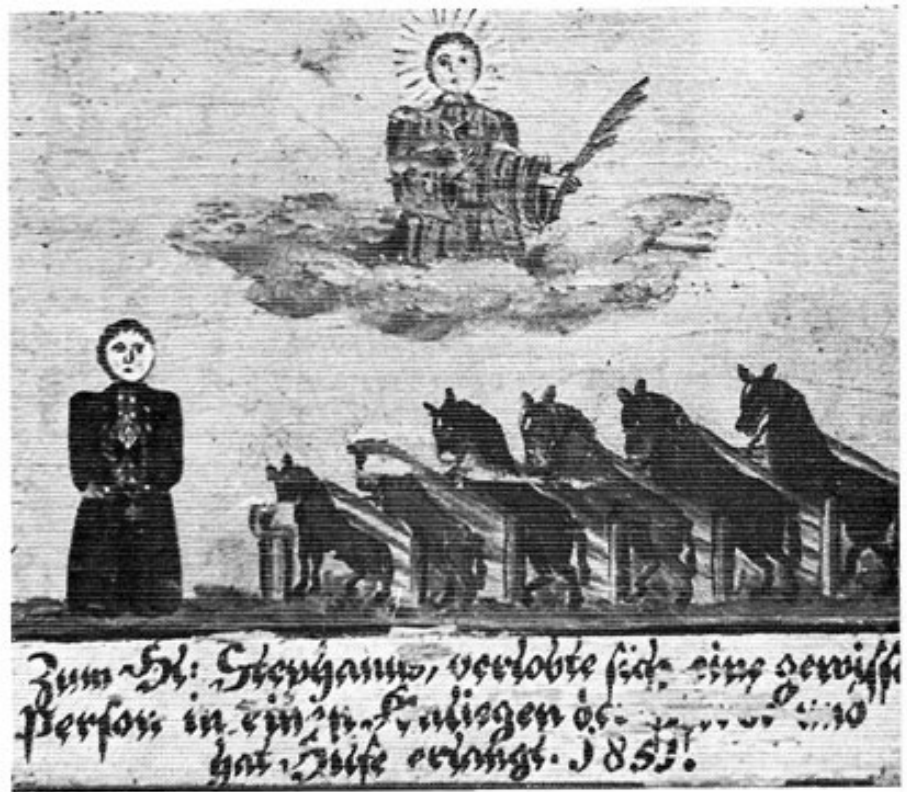 Zum Hl: Stephanus, verlobte sich eine gewisse
Person in einem Anliegen der und
hat Hilfe erlangt. 1851.